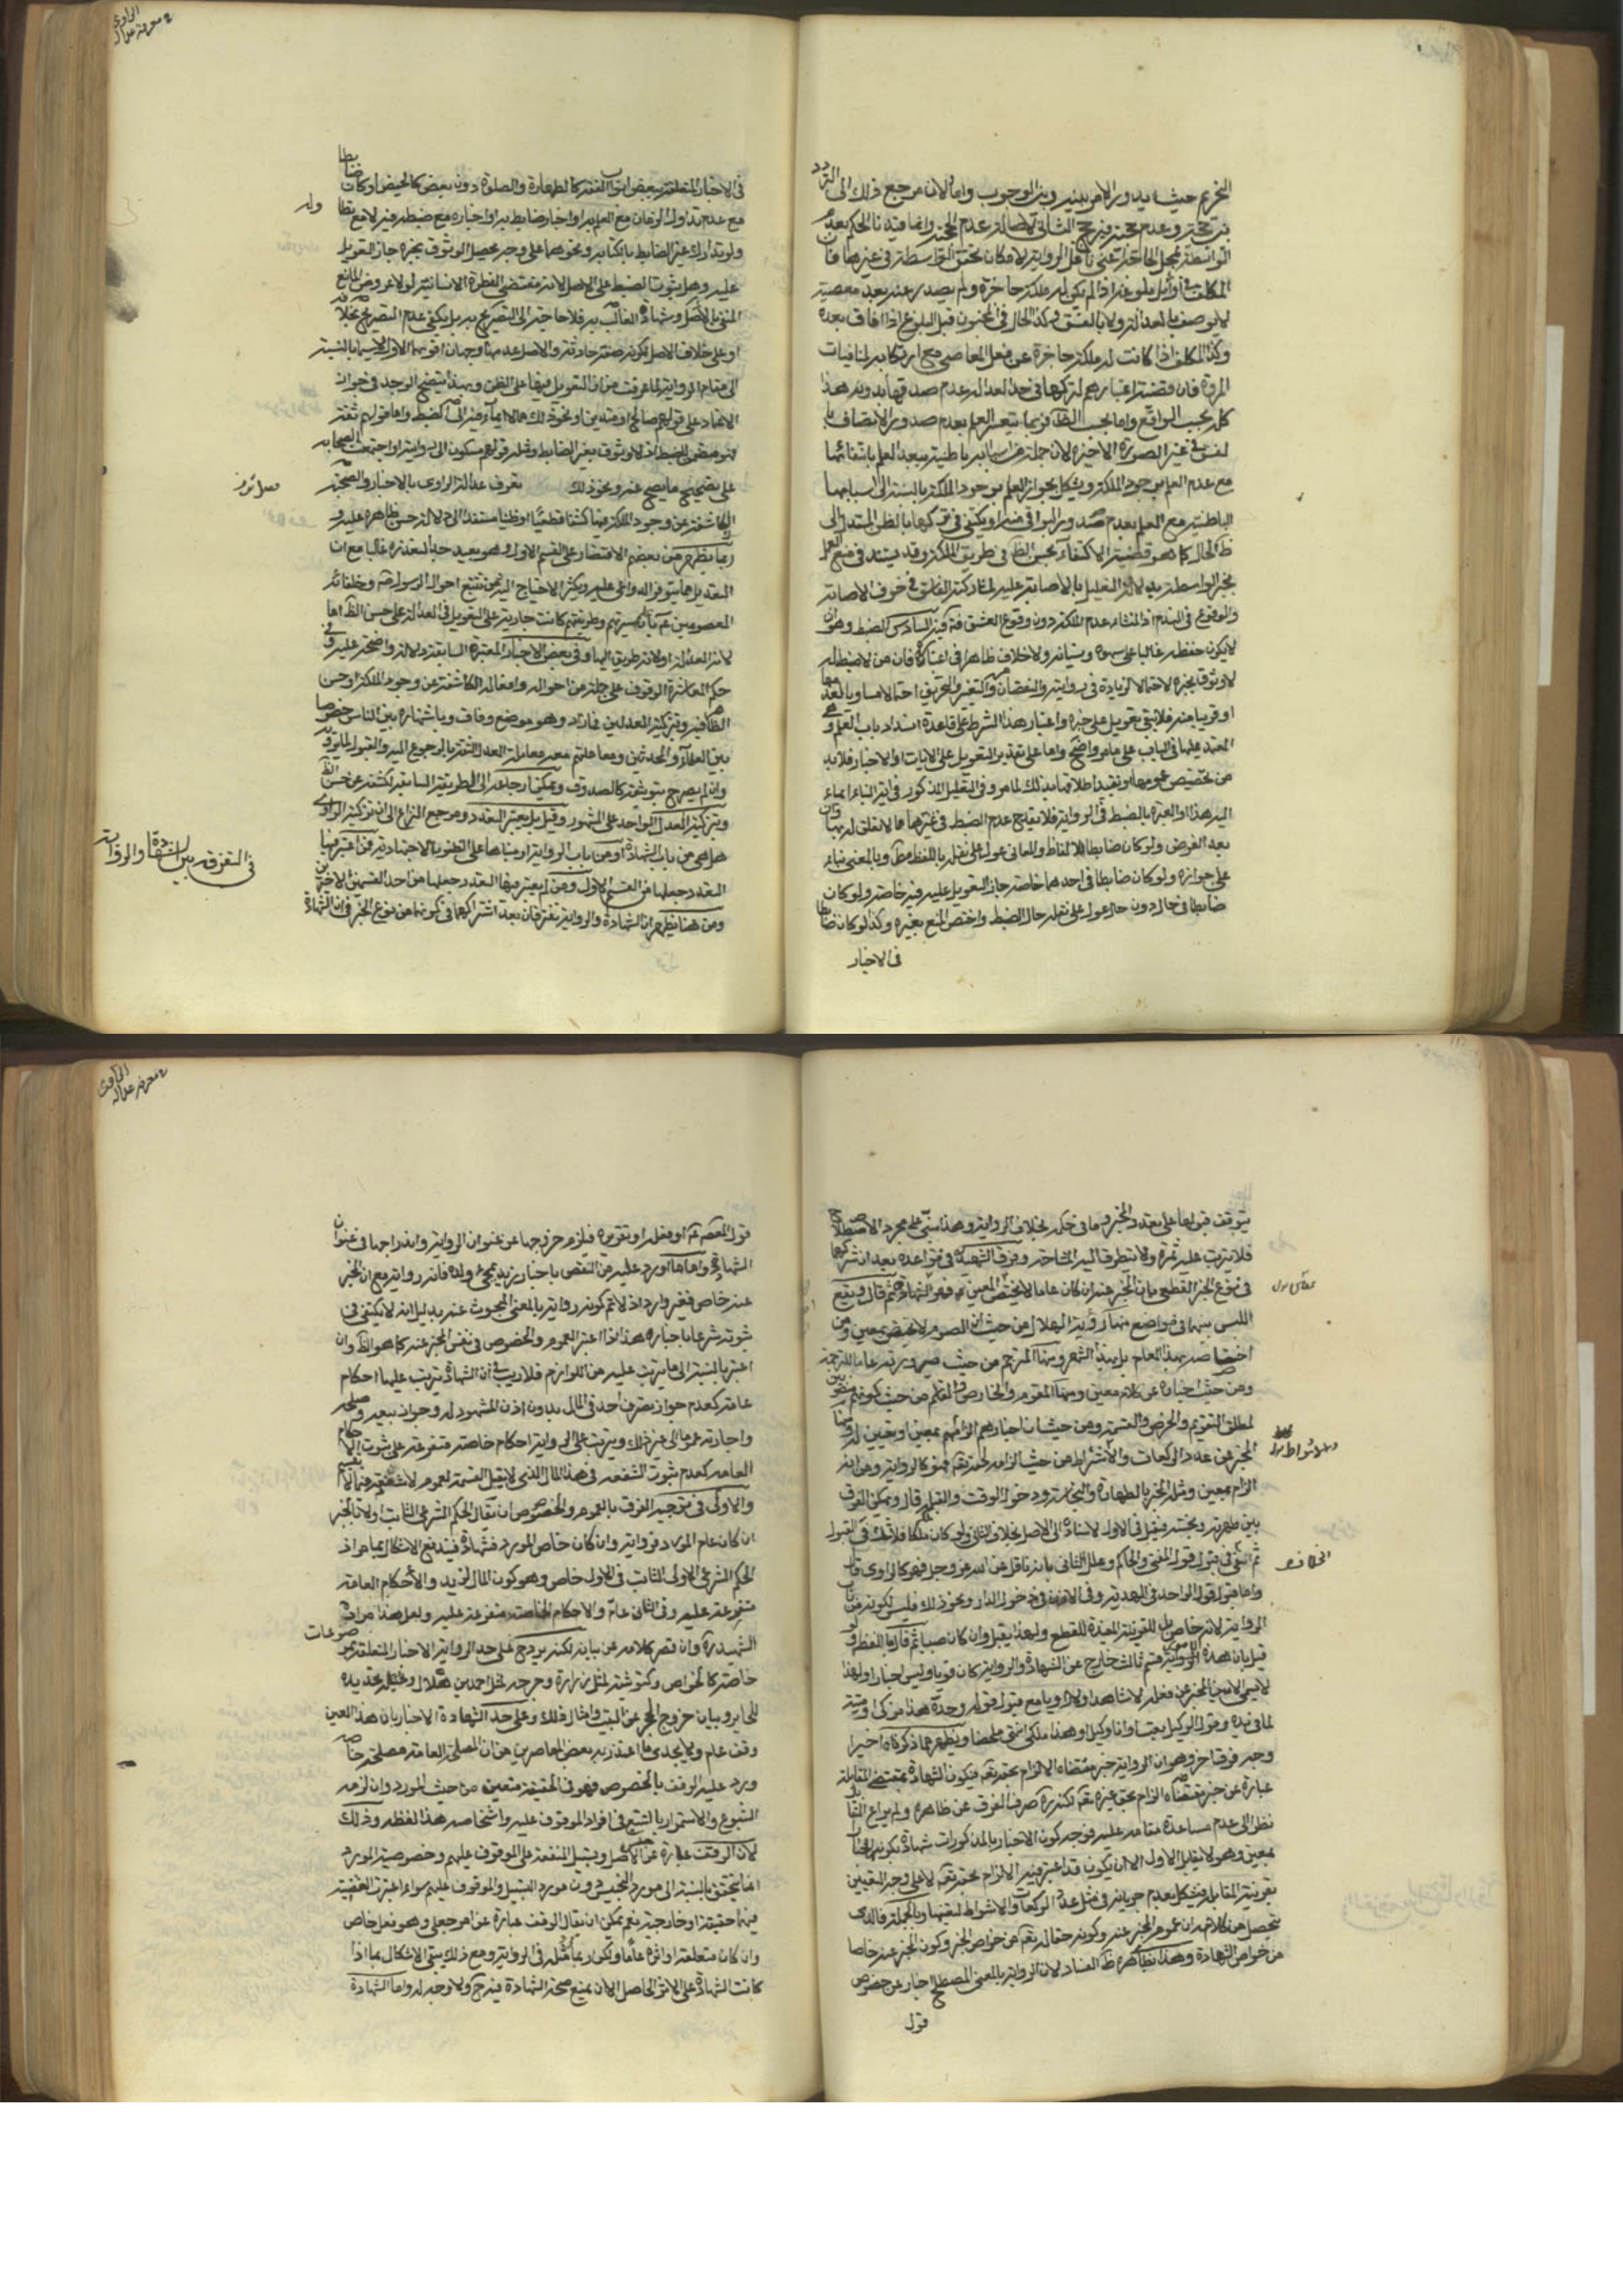 التحريم حيث يدور الامر بينه وبين الوجوب واما لان مرجع ذلك الى التردد
بين حجيته وعدم حجيته فيرجح الثاني لاصالة عدم الحجية وانما قيدنا الحكم بعدم
الواسطة بمحل الحاجة اعني ناقل الرواية لامكان تحقق الواسطة في غيرها فان
المكلف في أوائل بلوغه اذا لم يكن له ملكة حاجزة ولم يصدر عنه بعد معصية
لا يوصف بالعدالة ولا بالفسق وكذا الحال في المجنون قبل البلوغ اذا افاق بعده
وكذا المكلف اذا كانت له ملكة حاجزة عن فعل المعاصي مع ارتكابه لمنافيات
المروة فان قضية اعتبارهم لتركها في حد العدالة عدم صدقها بدونه هذا
كله بحسب الواقع واما بحسب الظاهر فربما يتعسر العلم بعدم صدور الاتصاف با
لفسق في غير الصورة الاخيرة لان جملة من اسبابه باطنية يبعد العلم بانتفائها
مع عدم العلم بوجود الملكة ويشكل بجواز العلم بوجود الملكة بالنسبة الى اسبابها
الباطنية مع العلم بعدم صدور البواقي منه او يكتفى في تركها بالظن المستند الى
ظ الحال كما هو قضية الاكتفاء بحسن الظاهر في طريق الملكة وقد يستند في منع العمل
بخبر الواسطة بدلالة التعليل بالاصابة عليه لمشاركته الفاسق في خوف الاصابة
والوقوع في الندم اذ المنشاء عدم الملكة دون وقوع الفسق فتدبر السادس الضبط وهو ان
لا يكون حفظه غالبا على سهوه ونسيانه ولا خلاف ظاهرا في اعتباره فان من لا ضبط له
لا وثوق بخبره لاحتمال الزيادة في روايته والنقصان والتغيير والتحريف احتمالا مساويا لعدمها
او قريبا منه فلا يبقى تعويل على خبره واعتبار هذا الشرط على قاعدة انسداد باب العلم وهي
المعتمد عليها في الباب على ما مر واضح واما على تقدير التعويل على الايات او الاخبار فلا بد
من تخصيص عمومها وتقييد اطلاقها بذلك لما مر وفي التعليل المذكور في اية النباء ايماء
اليه هذا والعبرة بالضبط في الرواية فلا يقدح عدم الضبط في غيرها مما لا تعلق له بها وان
بعد الفرض ولو كان ضابطا للالفاظ والمعاني عول على نقله باللفظ مط وبالمعنى بناء
على جوازه ولو كان ضابطا في احدهما خاصة جاز التعويل عليه فيه خاصة ولو كان
ضابطا في حال دون حال عول على نقله حال الضبط واختص المنع بغيره وكذا لو كان ضابطا
في الاخبار
في معرفة عدالة الراوي
في الاخبار المتعلقة ببعض ابواب الفقه كالطهارة والصلوة دون بعض كالحيض او كان ضابطا
مع عدم تداول الزمان مع العلم به او اخبار ضابط به او اخباره مع ضبطه فيه لا مع
ولو تدارك غير الضابط بالكتابة ونحوها على وجه يحصل الوثوق بخبره جاز التعويل
عليه وهل يثبت الضبط على الاصل لانه مقتضى الفطرة الانسانية لولا عروض المانع
المنفي بالاصل وشهادة الغالب به فلا حاجة الى التصريح به بل يكفي عدم التصريح بخلافه
او على خلاف الاصل لكونه صفة حادثة والاصل عدمها وجهان اقويهما الاول لا سيما بالنسبة
الى مقام الرواية لما عرفت من ان التعويل فيها على الظن وبهذا يتضح الوجه في جواز
الاعتماد على قولهم صالح او متدين او نحو ذلك مما لا ايماء فيه الى الضبط واما قولهم ثقة
فهو متضمن للضبط اذ لا وثوق بغير الضابط ومثله قولهم مسكون الى روايته او اجتمعت العصابة
على تصحيح ما يصح عنه ونحو ذلك تعرف عدالة الراوي بالاخبار والصحبة
الكاشفة عن وجود الملكة فيها كشفا قطعيا او ظنيا مستندا الى دلالة حسن ظاهره عليه و
ربما يظهر من بعضهم الاقتصار على القسم الاول وهو بعيد جدا لتعذره غالبا مع ان
التعديل مما يتوفر الدواعي عليه ويكثر الاحتياج اليه فمن تتبع احوال الرسول ص وخلفائه
المعصومين ع بان سيرتهم وطريقتهم كانت جارية على التعويل في العدالة على حسن الظاهر اما
لانه العدالة او لانه طريق اليها وفي بعض الاخبار المعتبرة السابقة دلالة واضحة عليه وفي
حكم المعاشرة الوقوف على جملة من احواله وافعاله الكاشفة عن وجود الملكة او حسن
الظاهر فيه وبتزكية المعدلين فما زاد وهو موضع وفاق وباشتهاره بين الناس خصوصا
بين العلماء والمحدثين ومعاملتهم معه معاملة العدل الثقة بالرجوع اليه والقبول لما يرويه
وان لم يصرح بتوثيقه كالصدوق ويمكن ارجاعه الى الطريقة السابقة لكشفه عن حسن الظاهر
وبتزكية العدل الواحد على المشهور وقيل بل يعتبر التعدد ومرجع النزاع الى ان تزكية الراوي
هل هي من باب الشهادة او من باب الرواية او مبناها على الظنون الاجتهادية فمن اعتبر فيها
التعدد جعلها من القسم الاول ومن لم يعتبر فيها التعدد جعلها من احد القسمين الاخيرين
ومن هنا يظهر ان الشهادة والرواية تفترقان بعد اشتراكهما في كونهما من نوع الخبر في ان الشهادة
في التفرقة بين الشهادة والرواية
يتوقف قبولها على تعدد المخبر وما في حكمه بخلاف الرواية وهذا مبني على مجرد الاصطلاح
فلا يترتب عليه ثمرة ولا يتطرق اليه المشاحة وفرق الشهيد في قواعده بعد اشتراكهما
في نوع الخبر القطعي بان المخبر عنه ان كان عاما لا يختص بالمعين فهو الرواية ثم قال ويقع
اللبس بينهما في مواضع منها رؤية الهلال من حيث ان الصوم لا يختص بمعين ومن
اختصاصه بهذا العام بل بهذا الشهر ومنها المترجم من حيث صيرورته عاما للترجمة
ومن حيث اخباره عن كلام معين ومنها المقوم والخارص والقاسم من حيث كونهم منصوبين
لمطلق التقويم والخرص والقسمة ومن حيث ان اخبارهم الزام لمعين او تعيين له ومنها
المخبر عن عدد الركعات والاشواط من حيث الزامه لحقه تعالى فهو كالرواية ومن انه
الزام بمعين ومثله المخبر بالطهارة والنجاسة ودخول الوقت والقبلة قال ويمكن الفرق
بين طهارته ونجسه فيقبل في الاول لاستناده الى الاصل بخلاف الثاني ولو كان ملكا فلا شك في القبول
ثم في قبول قول المفتي والحاكم وعلل الثاني بانه ناقل عن الله عز وجل فهو كالراوي قال
واما قبول قول الواحد في الهدية وفي الاذن في دخول الدار ونحو ذلك فليس لكونه من باب
الرواية لانه خاص بل للقرينة المفيدة للقطع ولهذا يقبل وان كان صبيا ثم قال ولو
قيل بان هذه الامور قسم ثالث خارج عن الشهادة والرواية كان قويا وليس اخبارا ولهذا
لا يسمى الامين المخبر عن فعله شاهدا ولا راويا مع قبول قوله وحده هذا مزكى او ميتة
لما في يده وقول الوكيل بعت او انا وكيل او هذا ملكي انتهى ملخصا ويظهر مما ذكره اخيرا
وجه فرق اخر وهو ان الرواية خبر مقتضاه الالزام بحقه تعالى فيكون الشهادة بمقتضى المقابلة
عبارة عن خبر مقتضاه الزام بحق غيره تعالى لكنه صرف الفرق عن ظاهره ولم يراع التقابل
نظرا الى عدم مساعدة مقامه عليه فوجه كون الاخبار بالمذكورات شهادة بكونه
بمعين وهو لا يقابل الاول الا ان يكون قد اعتبر فيه الالزام بحقه تعالى لا على وجه التعيين
بقرينة المقابلة فيشكل بعدم جريانه في مثل عدد الركعات والاشواط لتعينها وبالجملة فالذي
يتحصل من كلامه ان عموم المخبر عنه وكونه حقا له تعالى من خواص الخبر وكون المخبر عنه خاصا
من خواص الشهادة وهذا بظاهره ظ الفساد لان الرواية بالمعنى المصطلح اخبار عن خصوص
قول
في معرفة عدالة الراوي
قول المعصوم ع او فعله او تقريره فيلزم خروجها عن عنوان الرواية واندراجها في عنوان
الشهادة واما ما اورد عليه من النقض باخبار زيد بمجئ ولده فانه رواية مع ان المخبر
عنه خاص فغير وارد اذ لا نم كونه رواية بالمعنى المبحوث عنه بدليل انه لا يكتفى في
ثبوته شرعا باخباره هذا اذا اعتبر العموم والخصوص في نفس المخبر عنه كما هو الظ وان
اعتبر بالنسبة الى ما يترتب عليه من اللوازم فلا ريب في ان الشهادة يترتب عليها احكام
عامة كعدم جواز تصرف احد في المال بدون اذن المشهود له وجواز بيعه وصلحه
واجارته عموما الى غير ذلك ويترتب على الرواية احكام خاصة متفرعة على ثبوت الاحكام
العامة كعدم ثبوت الشفعة في هذا المال الذي لا يقبل القسمة لعموم لا شفعة فيما لا يقسم
والاولى في توجيه الفرق بالعموم والخصوص ان يقال الحكم الشرعي الثابت اولا بالخبر
ان كان عام المورد فرواية وان كان خاص المورد فشهادة فيندفع الاشكال بما مر اذ
الحكم الشرعي الاولي الثابت في الاول خاص وهو كون المال لزيد والاحكام العامة
متفرعة عليه وفي الثاني عام والاحكام الخاصة متفرعة عليه ولعل هذا مراد
الشهيد ره وان قصر كلامه عن بيانه لكنه يرد على حد الرواية الاخبار المتعلقة بموضوعات
خاصة كالخواص وكتوثيقه لمثل زرارة وجرحه لمثل احمد بن هلال وتحديده
للحاير وبيان خروج الحجر عن البيت وامثال ذلك وعلى حد الشهادة الاخبار بان هذا العين
وقف عام ولا يجدي ما اعتذر به بعض المعاصرين من ان المصلحة العامة مصلحة خاصة
ورد عليه الوقف بالخصوص فهو في الحقيقة متعين من حيث المورد وان لزمه
الشيوع والاستمرار بالتتبع في افراد الموقوف عليه واشخاصه هذا لفظه وذلك
لان الوقف عبارة عن حبس الاصل وتسبيل المنفعة على الموقوف عليهم وخصوصية المورد
انما يتحقق بالنسبة الى مورد التحبيس دون مورد التسبيل والموقوف عليهم سواء اعتبرت القضية
فيه حقيقة او خارجية نعم يمكن ان يقال الوقف عبارة عن امر جعلي وهو فعل خاص
وان كان متعلقه او اثره عاما ويكون ربما مثله في الرواية ومع ذلك يبقى الاشكال بما اذا
كانت الشهادة على الاثر الحاصل الا ان يمنع صحة الشهادة فيه ح ولا وجه له واما الشهادة